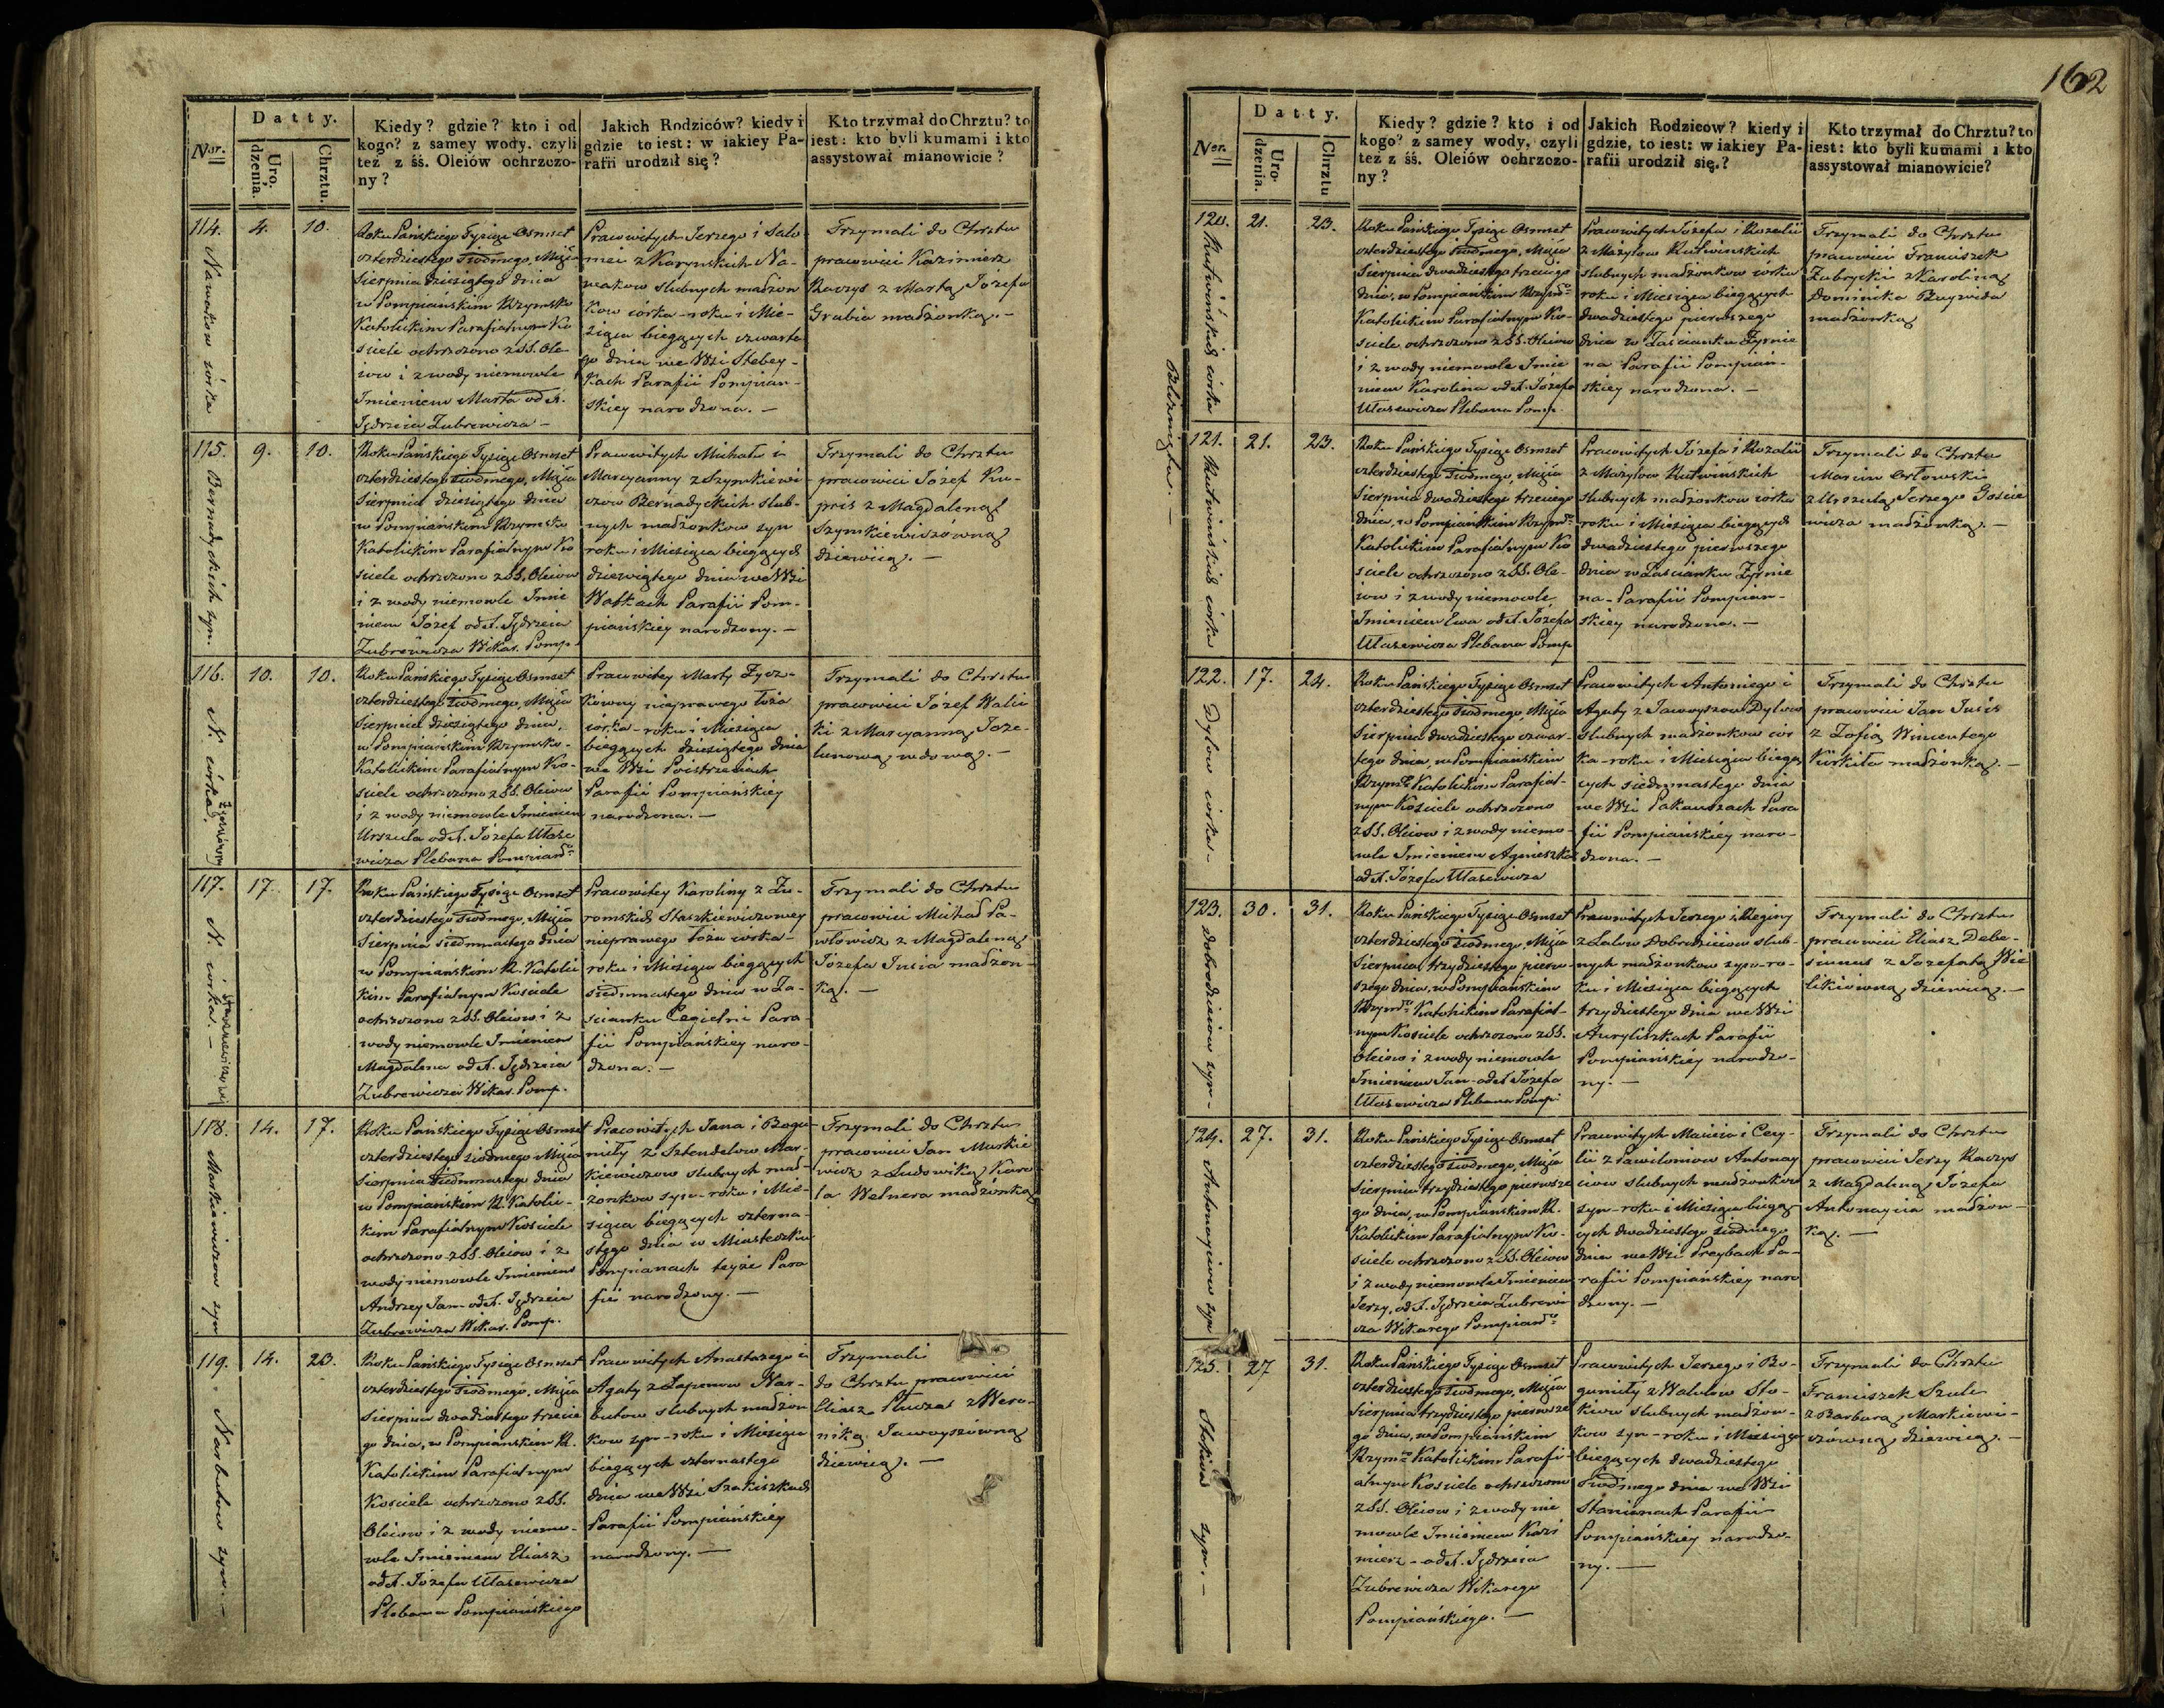 162
Datty.
Ner.
Uro.
dzenia.
Chrztu.
Kiedy? gdzie? kto i od
kogo? z samey wody, czyli
też z śś. Oleiów ochrzczo-
ny?
Jakich Rodziców? kiedy i
gdzie to iest: w iakiey Pa-
rafii urodził się?
Kto trzymał do Chrztu? to
iest: kto byli kumami i kto
assystował mianowicie?
114.
Nawakow córka
4.
10.
Roku Pańskiego Tysiąc Osmset
czterdziestego siodmego, Msca
Sierpnia dziesiątego dnia
w Pompiańskim Rzymsko
Katolickim Parafialnym Ko
sciele ochrzczono z SS. Ole-
iow i z wody niemowle
Imieniem Marta od X.
Jędrzeia Zubrewicza —
Pracowitych Jerzego i Salo
mei z Karynskich Na-
wakow slubnych madzon
kow córka - roku i Mie-
siąca bieżących czwarte
go dnia we Wsi Stebey-
kach Parafii Pompian-
skiey narodzona. —
Trzymali do Chrztu
pracowici Kazimierz
Raczys z Martą Józefa
Grabia madżonką. —
115.
Bernadyckich syn.
9.
10.
Roku Pańskiego Tysiąc Osmset
czterdziestego siodmego, Msca
Sierpnia dziesiątego dnia
w Pompiańskim Rzymsko
Katolickim Parafialnym Ko
sciele ochrzczono z SS. Oleiow
i z wody niemowle Imie
niem Józef od X. Jędrzeia
Zubrewicza Wikar. Pomp.
Pracowitych Michała i
Maryanny z Szymkiewi-
czow Bernadyckich slub-
nych madzonkow syn
roku i Miesiąca bieżących
dziewiątego dnia we Wsi
Wabkach Parafii Pom-
piańskiey narodzony. —
Trzymali do Chrztu
pracowici Józef Ku-
pris z Magdaleną
Szymkiewiczówną
dziewicą. —
116.
N. córka.
10.
10.
Roku Pańskiego Tysiąc Osmset
czterdziestego siodmego, Msca
Sierpnia dziesiątego dnia,
w Pompiańskim Rzymsko-
Katolickim Parafialnym Ko-
sciele ochrzczono z SS. Oleiow
i z wody niemowle Imieniem
Urszula od X. Józefa Ułase
wicza Plebana Pompiańs
Pracowitey Marty Życz-
kówny nieprawego łoża
córka - roku i Miesiąca
bieżących dziesiątego dnia
we Wsi Poistrzeciach
Parafii Pompiańskiey
narodzona. —
Trzymali do Chrztu
pracowici Józef Walic
ki z Maryanną Joze-
lunową wdową. —
117.
N. corka. —
17.
17.
Roku Pańskiego Tysiąc Osmset
czterdziestego siodmego, Msca
Sierpnia siedmnastego dnia
w Pompiańskim R. Katolic
kim Parafialnym Kosciele
ochrzczono z SS. Oleiow i z
wody niemowle Imieniem
Magdalena od X. Jędrzeia
Zubrewicza Wikar. Pomp.
Pracowitey Karoliny z Zu-
romskich Staszkiewiczowey
nieprawego łoża córka -
roku i Miesiąca bieżących
siedmnastego dnia w Za-
scianku Cegielni Para-
fii Pompiańskiey naro-
dzona. —
Trzymali do Chrztu
pracowici Michał Pa-
włowicz z Magdaleną
Józefa Jusia madzon-
ką. —
118.
Markiewiczow syn
14.
17.
Roku Pańskiego Tysiąc Osmset
czterdziestego siodmego Msca
Sierpnia siedmnastego dnia
w Pompiańskim R. Katolic-
kim Parafialnym Kościele
ochrzczono z SS. Oleiow i z
wody niemowle Imieniem
Andrzey Jan od X. Jędrzeia
Zubrewicza Wikar. Pomp.
Pracowitych Jana i Bogu
miły z Sztendelow Mar-
kiewiczow slubnych mad-
zonkow syn - roku i Mie-
siąca bieżących czterna-
stego dnia w Miasteczku
Pompianach teyże Para
fii narodzony. —
Trzymali do Chrztu
pracowici Jan Markie
wicz z Ludowiką Karo-
la Welnera madżonką
119.
Narbutow syn. —
14.
23.
Roku Pańskiego Tysiąc Osmset
czterdziestego siodmego, Msca
Sierpnia dwadziestego trzecie
go dnia, w Pompiańskim R.
Katolickim Parafialnym
Kosciele ochrzczono z SS.
Oleiow i z wody niemo-
wle Imieniem Eliasz
od X. Józefa Ułasewicza
Plebana Pompiańskiego
Pracowitych Anastazego i
Agaty z Łapenow Nar-
butow slubnych madzon
kow syn - roku i Miesiąca
bieżących czternastego
dnia we Wsi Szakiszkach
Parafii Pompiańskiey
narodzony. —
Trzymali
do Chrztu pracowici
Eliasz Pluczas z Wero-
niką Jawoyszówną
dziewicą. —
Datty.
Ner.
Uro.
dzenia.
Chrztu
Kiedy? gdzie? kto i od
kogo? z samey wody, czyli
też z śś. Oleiów ochrzczo-
ny?
Jakich Rodziców? kiedy i
gdzie, to iest: w iakiey Pa-
rafii urodził się.?
Kto trzymał do Chrztu? to
iest: kto byli kumami i kto
assystował mianowicie?
120.
Rutwińskich córka
Bliznięta. —
21.
23.
Roku Pańskiego Tysiąc Osmset
czterdziestego siodmego, Msca
Sierpnia dwadziestego trzeciego
dnia, w Pompiańskim Rzyms
Katolickim Parafialnym Ko-
sciele ochrzczono z SS. Oleiow
i z wody niemowle Imie
niem Karolina od X. Józefa
Ułasewicza Plebana Pomp.
Pracowitych Józefa i Rozalii
z Mażylow Rutwinskich
slubnych madzonkow córka
roku i Miesiąca bieżących
dwadziestego pierwszego
dnia w Zascianku Żyrnie
na Parafii Pompiań-
skiey narodzona. —
Trzymali do Chrztu
pracowici Franciszek
Zubrycki z Karoliną
Dominika Ruywida
madżonką
121.
Rutwińskich córka
21.
23.
Roku Pańskiego Tysiąc Osmset
czterdziestego siodmego, Msca
Sierpnia dwadziestego trzeciego
dnia, w Pompiańskim Rzyms
Katolickim Parafialnym Ko
sciele ochrzczono z SS. Ole-
iow i z wody niemowle
Imieniem Ewa od X. Józefa
Ułasewicza Plebana Pomp
Pracowitych Józefa i Rozalii
z Mażylow Rutwinskich
slubnych madzonkow corka
roku i Miesiąca bieżących
dwadziestego pierwszego
dnia w Zascianku Żyrnie
na - Parafii Pompian-
skiey narodzona. —
Trzymali do Chrztu
Marcin Orłowski
z Urszulą Jerzego Gosce
wicza madżonką. —
122.
Dylow córka -
17.
24.
Roku Pańskiego Tysiąc Osmset
czterdziestego siodmego, Msca
Sierpnia dwadziestego czwar-
tego dnia, w Pompiańskim
Rzyms Katolickim Parafial-
nym Kościele ochrzczono
z SS. Oleiow i z wody niemo-
wle Imieniem Agnieszka
od X. Józefa Ułasewicza
Pracowitych Antoniego i
Agaty z Jawoyszow Dylow
slubnych madzonkow cór
ka - roku i Miesiąca bieżą
cych siedmnastego dnia
we Wsi Pakauszach Para
fii Pompiańskiey naro-
dzona. —
Trzymali do Chrztu
pracowici Jan Jusis
z Zofią Wincentego
Kirkiła madżonką. —
123.
Dobrodzieiow syn -
30.
31.
Roku Pańskiego Tysiąc Osmset
czterdziestego siodmego, Msca
Sierpnia trzydziestego pierw-
szego dnia, w Pompiańskim
Rzyms Katolickim Parafial-
nym Kosciele ochrzczono z SS.
Oleiow i z wody niemowle
Imieniem Jan - od X Józefa
Ułasewicza Plebana Pomp:
Pracowitych Jerzego i Reginy
z Lalow Dobrodzieiow slub-
nych madzonkow syn - ro-
ku i Miesiąca bieżących
trzydziestego dnia we Wsi
Auryliszkach Parafii
Pompiańskiey narodzo-
ny. —
Trzymali do Chrztu
pracowici Eliasz Debe-
siunas z Jozefatą Wie
likiówną dziewicą. —
124.
Antonayciow syn
27.
31.
Roku Pańskiego Tysiąc Osmset
czterdziestego siodmego, Msca
Sierpnia trzydziestego pierwsze
go dnia, w Pompiańskim R.
Katolickim Parafialnym Ko-
sciele ochrzczono z SS. Oleiow
i z wody niemowle Imieniem
Jerzy, od X. Jędrzeia Zubrewi
cza Wikarego Pompiańs
Pracowitych Macieia i Cecy-
lii z Pawilonow Antonay
ciow slubnych madżonkow
syn - roku i Miesiąca bieżą
cych dwadziestego siodmego
dnia we Wsi Preybach Pa-
rafii Pompiańskiey naro
dzony. —
Trzymali do Chrztu
pracowici Jerzy Raczys
z Magdaleną Józefa
Antonaycia madżon-
ką. —
125.
Stokiow syn. —
27
31.
Roku Pańskiego Tysiąc Osmset
czterdziestego siodmego, Msca
Sierpnia trzydziestego pierwsze
go dnia, w Pompiańskim
Rzyms Katolickim Parafi-
alnym Kosciele ochrzczono
z SS. Oleiow i z wody nie
mowle Imieniem Kazi
mierz - od X. Jędrzeia
Zubrewicza Wikarego
Pompiańskiego. —
Pracowitych Jerzego i Bo-
gumiły z Walulow Sto-
kiow slubnych madzon-
kow syn - roku i Miesiąca
bieżących dwadziestego
siodmego dnia we Wsi
Stanienach Parafii
Pompiańskiey narodzo-
ny. —
Trzymali do Chrztu
Franciszek Szule
z Barbarą Markiewi-
czówną dziewicą. —